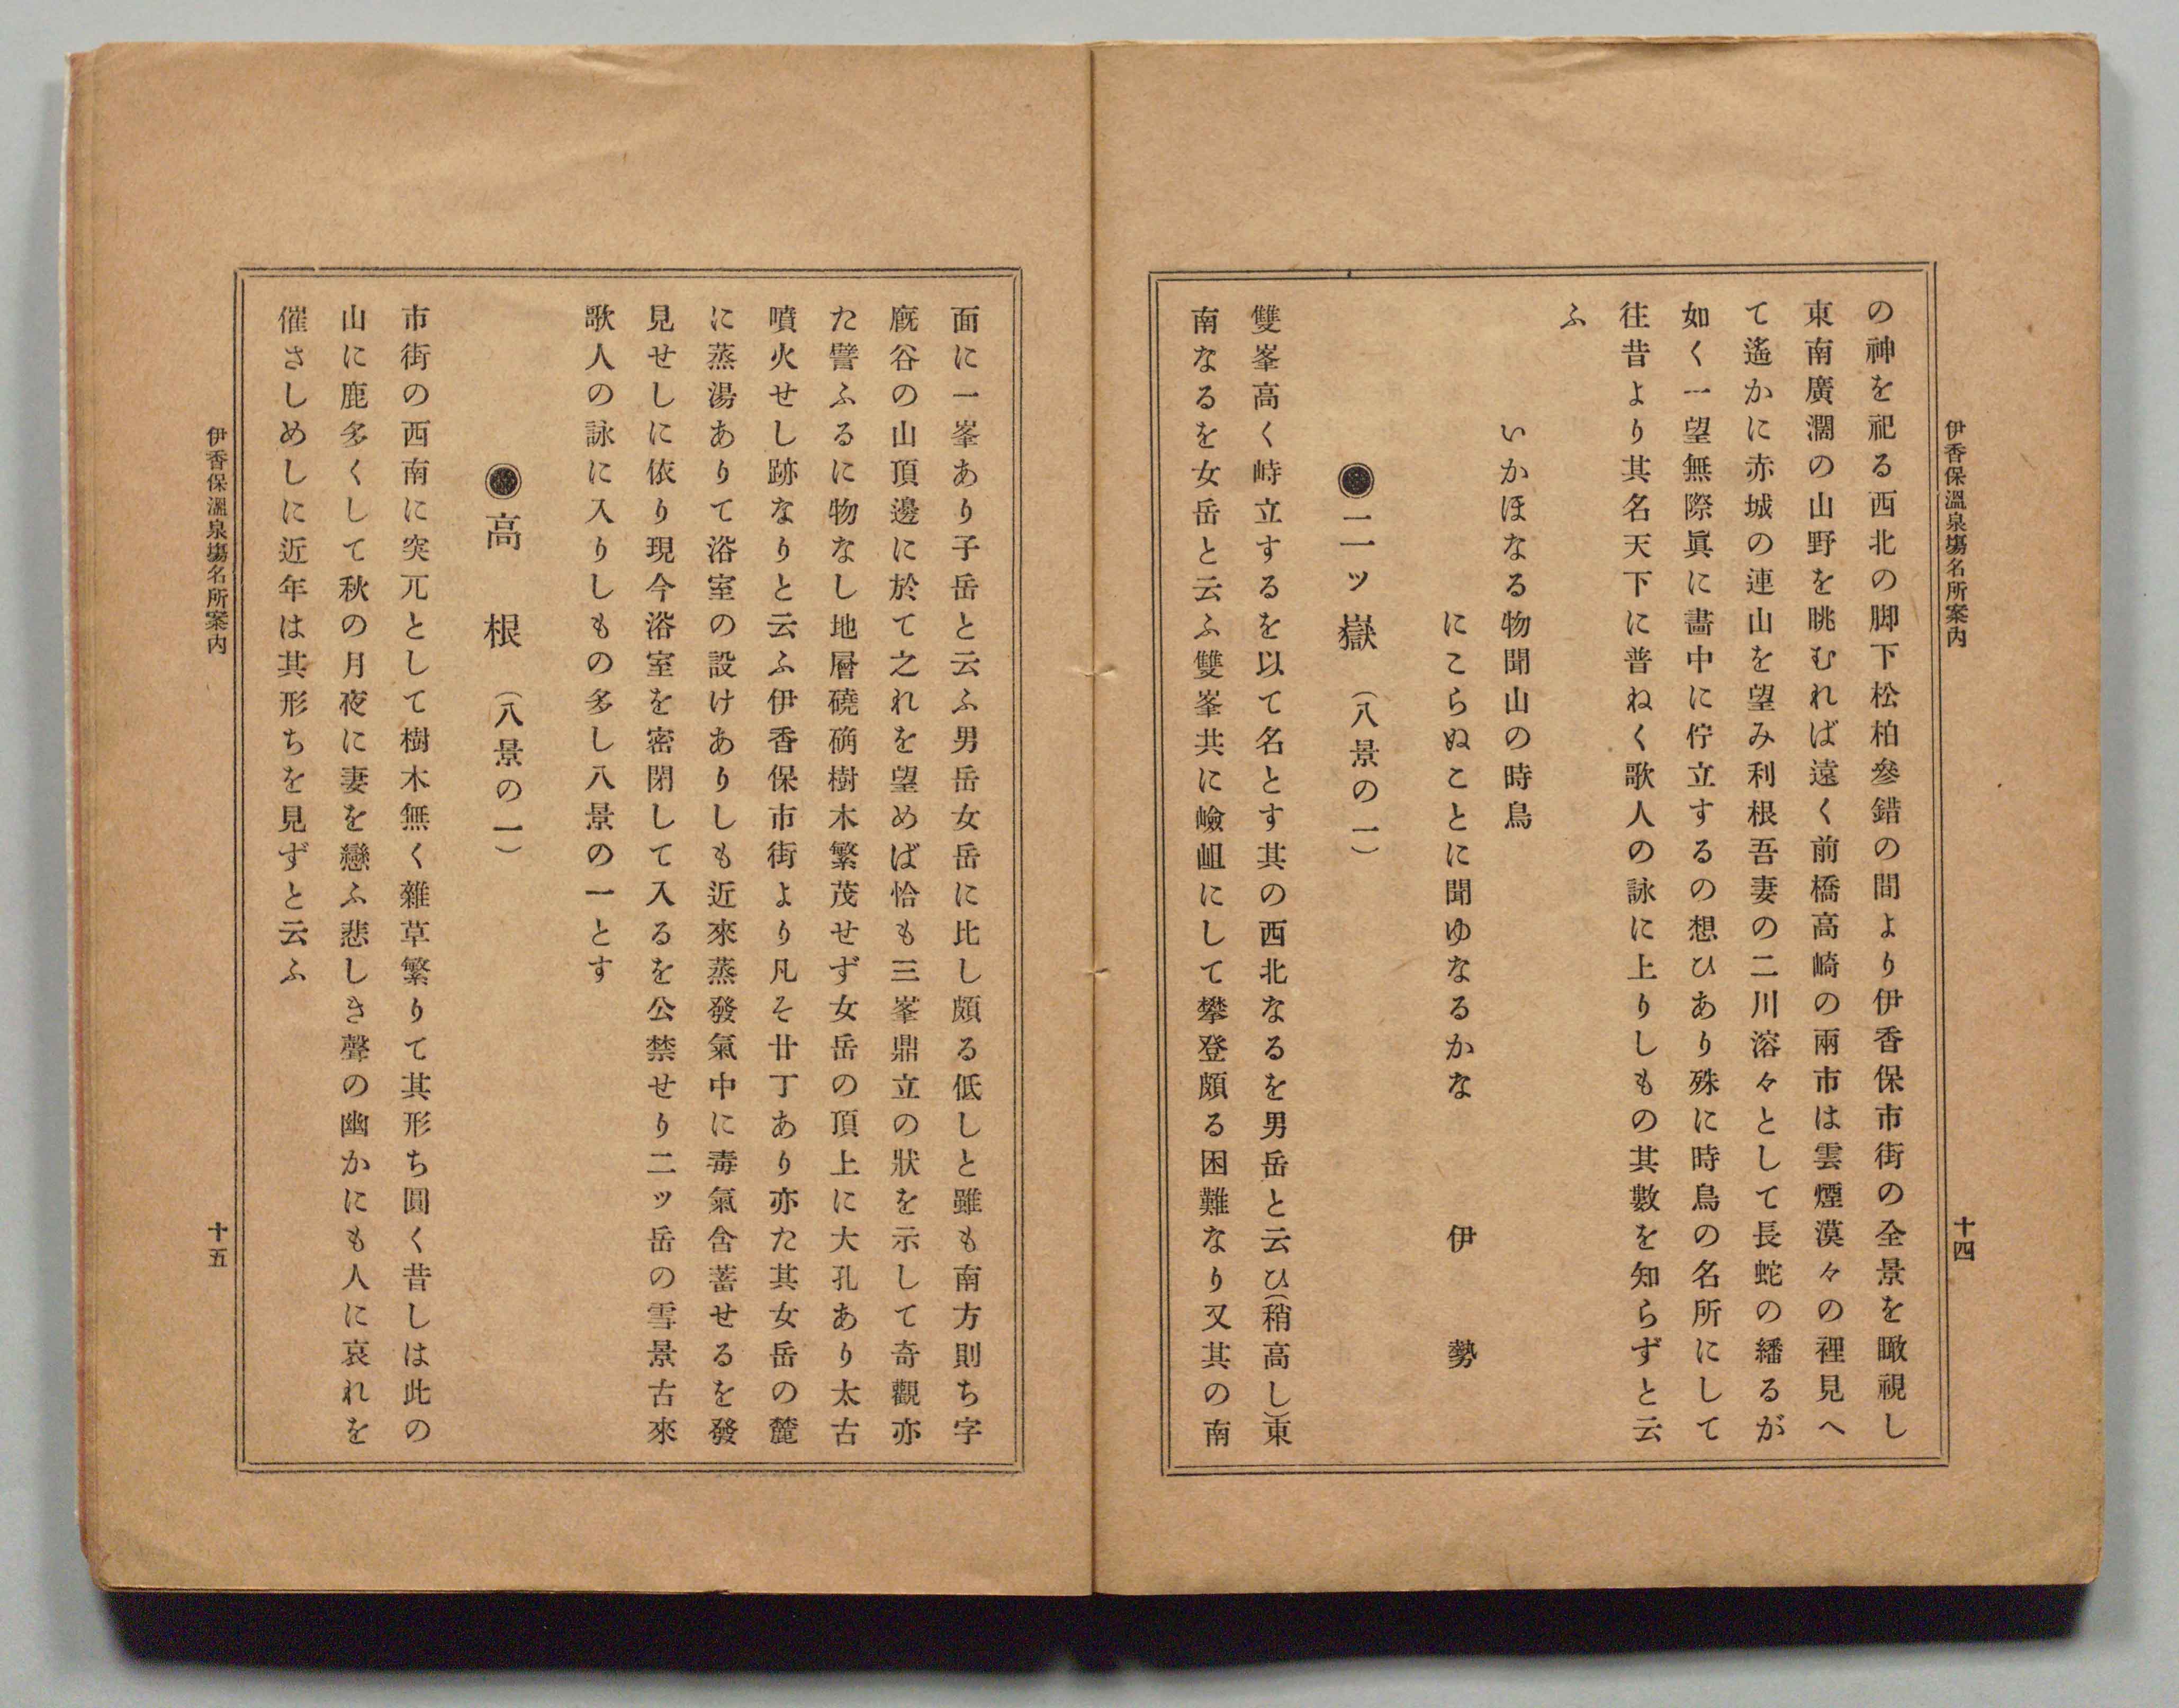 伊香保溫泉塲名所案內
十四
の神を祀る西北の脚下松柏參錯の間より伊香保市街の全景を瞰視し
東南廣濶の山野を眺むれば遠く前橋高崎の兩市は雲煙漠々の裡見へ
て遙かに赤城の連山を望み利根吾妻の二川溶々として長蛇の繙るが
如く一望無際眞に畵中に佇立するの想ひあり殊に時鳥の名所にして
往昔より其名天下に普ねく歌人の詠に上りしもの其數を知らずと云
ふ
いかほなる物聞山の時鳥
にこらぬことに聞ゆなるかな　伊勢
◉二ッ嶽（八景の一）
雙峯高く峙立するを以て名とす其の西北なるを男岳と云ひ（稍高し）東
南なるを女岳と云ふ雙峯共に嶮岨にして攀登頗る困難なり又其の南
面に一峯あり子岳と云ふ男岳女岳に比し頗る低しと雖も南方則ち字
廐谷の山頂邊に於て之れを望めば恰も三峯鼎立の狀を示して奇觀亦
た譬ふるに物なし地層磽确樹木繁茂せず女岳の頂上に大孔あり太古
噴火せし跡なりと云ふ伊香保市街より凡そ廿丁あり亦た其女岳の麓
に蒸湯ありて浴室の設けありしも近來蒸發氣中に毒氣含蓄せるを發
見せしに依り現今浴室を密閉して入るを公禁せり二ッ岳の雪景古來
歌人の詠に入りしもの多し八景の一とす
◉高根（八景の一）
市街の西南に突兀として樹木無く雜草繁りて其形ち圓く昔しは此の
山に鹿多くして秋の月夜に妻を戀ふ悲しき聲の幽かにも人に哀れを
催さしめしに近年は其形ちを見ずと云ふ
伊香保溫泉塲名所案內
十五